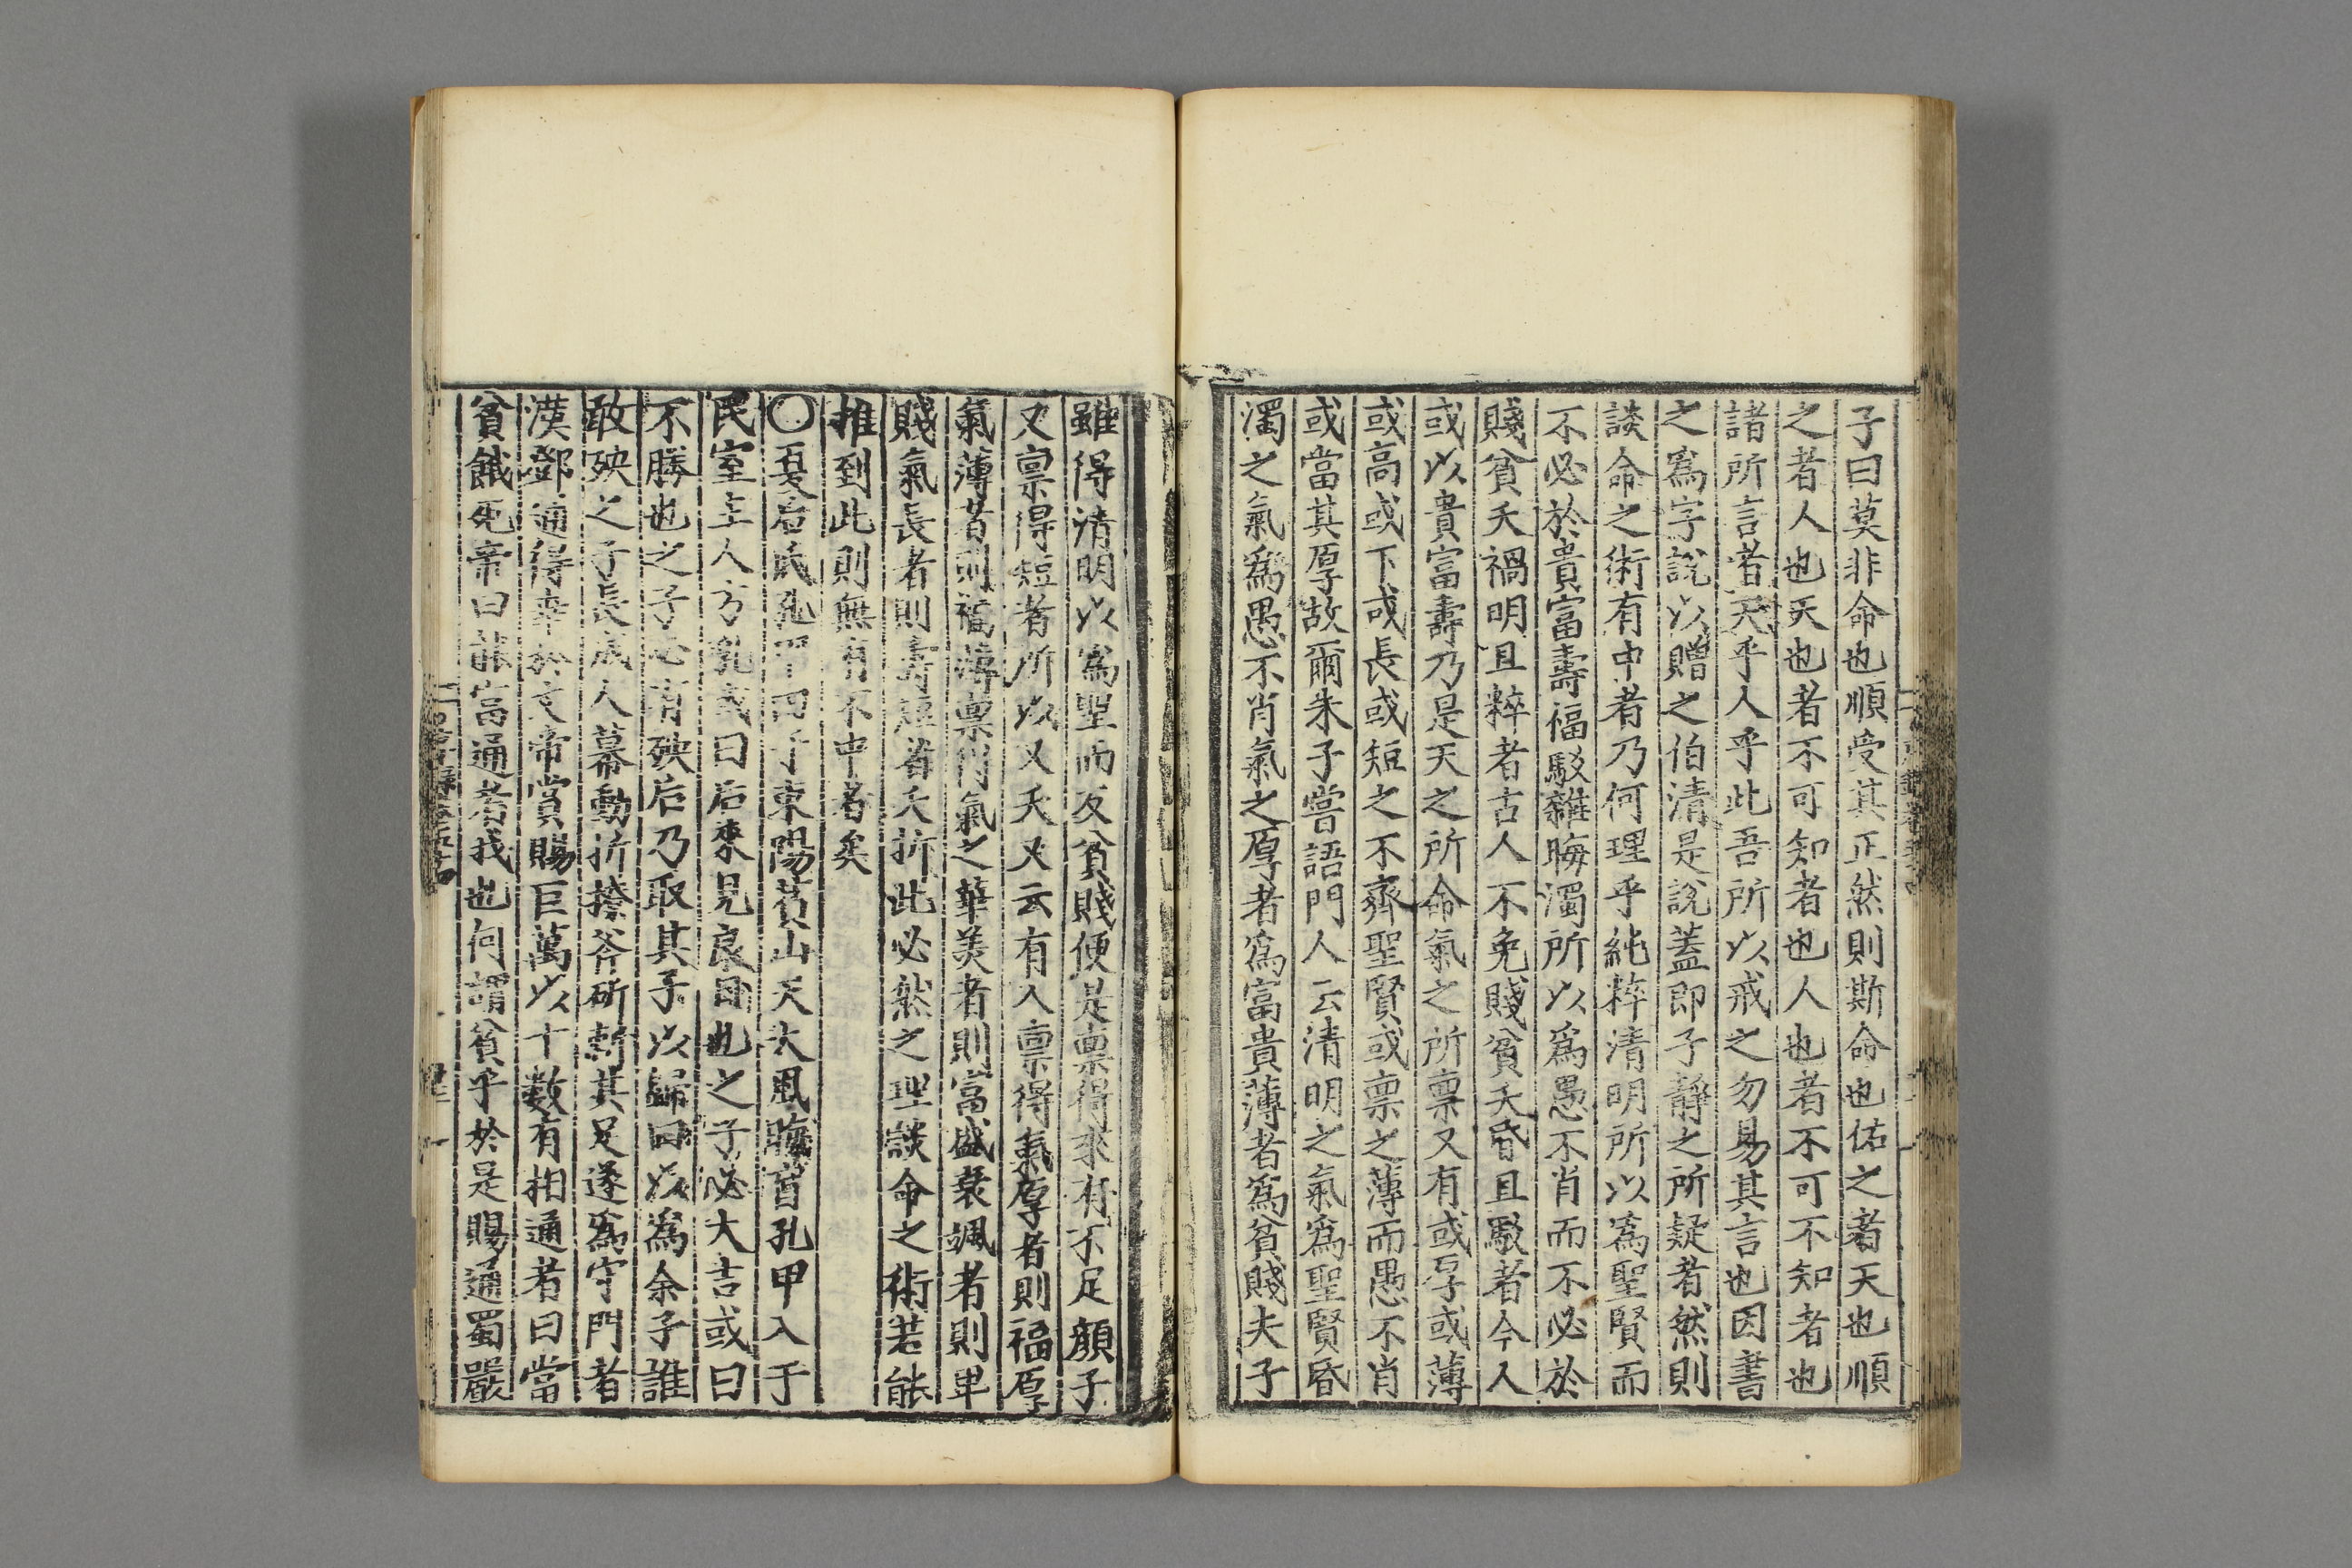 子曰莫非命也順受其正然則斯命也佑之者天也順
之者人也天也者不可知者也人也者不可不知者也
諸所言者天乎人乎此吾所以戒之勿易其言也因書
之爲字說以贈之伯清是說蓋即子靜之所疑者然則
談命之術有中者乃何理乎純粹清明所以爲聖賢而
不必於貴富壽福駁雜晦濁所以爲愚不肖而不必於
賤貧夭禍明且粹者古人不免賤貧夭昏且駁者今人
或以貴富壽乃是天之所命氣之所禀又有或厚或薄
或高或下或長或短之不齊聖賢或禀之薄而愚不肖
或當其厚故爾朱子嘗語門人云清明之氣爲聖賢昏
濁之氣爲愚不肖氣之厚者爲富貴薄者爲貧賤夫子
雖得清明以爲聖而反貧賤便是禀得來有不足顔子
又禀得短者所以又夭又云有人禀得氣厚者則福厚
氣薄者則福薄禀得氣之華美者則富盛衰颯者則卑
賤氣長者則壽短者夭折此必然之理談命之術若能
推到此則無有不中者矣
〇夏后氏孔甲田于東陽萯山天大風晦盲孔甲入于
民室主人方乳或曰后來見良日也之子必大吉或曰
不勝也之子必有殃后乃取其子以歸曰以爲余子誰
敢殃之子長成人幕動折撩斧斫斬其足遂爲守門者
漢鄧通得幸於文帝賞賜巨萬以十數有相通者曰當
貧餓死帝曰能富通者我也何謂貧乎於是賜通蜀嚴